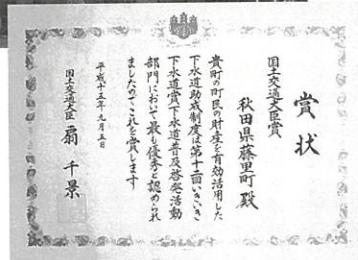 賞状
国土交通大臣賞
秋田県藤里町殿
貴町の町民の財産を有効活用した
下水道助成制度は第十二回いきいき
下水道賞下水道普及啓発活動
部門において最も優秀と認められ
ましたのでこれを賞します
平成十五年九月五日
国土交通大臣 扇千景